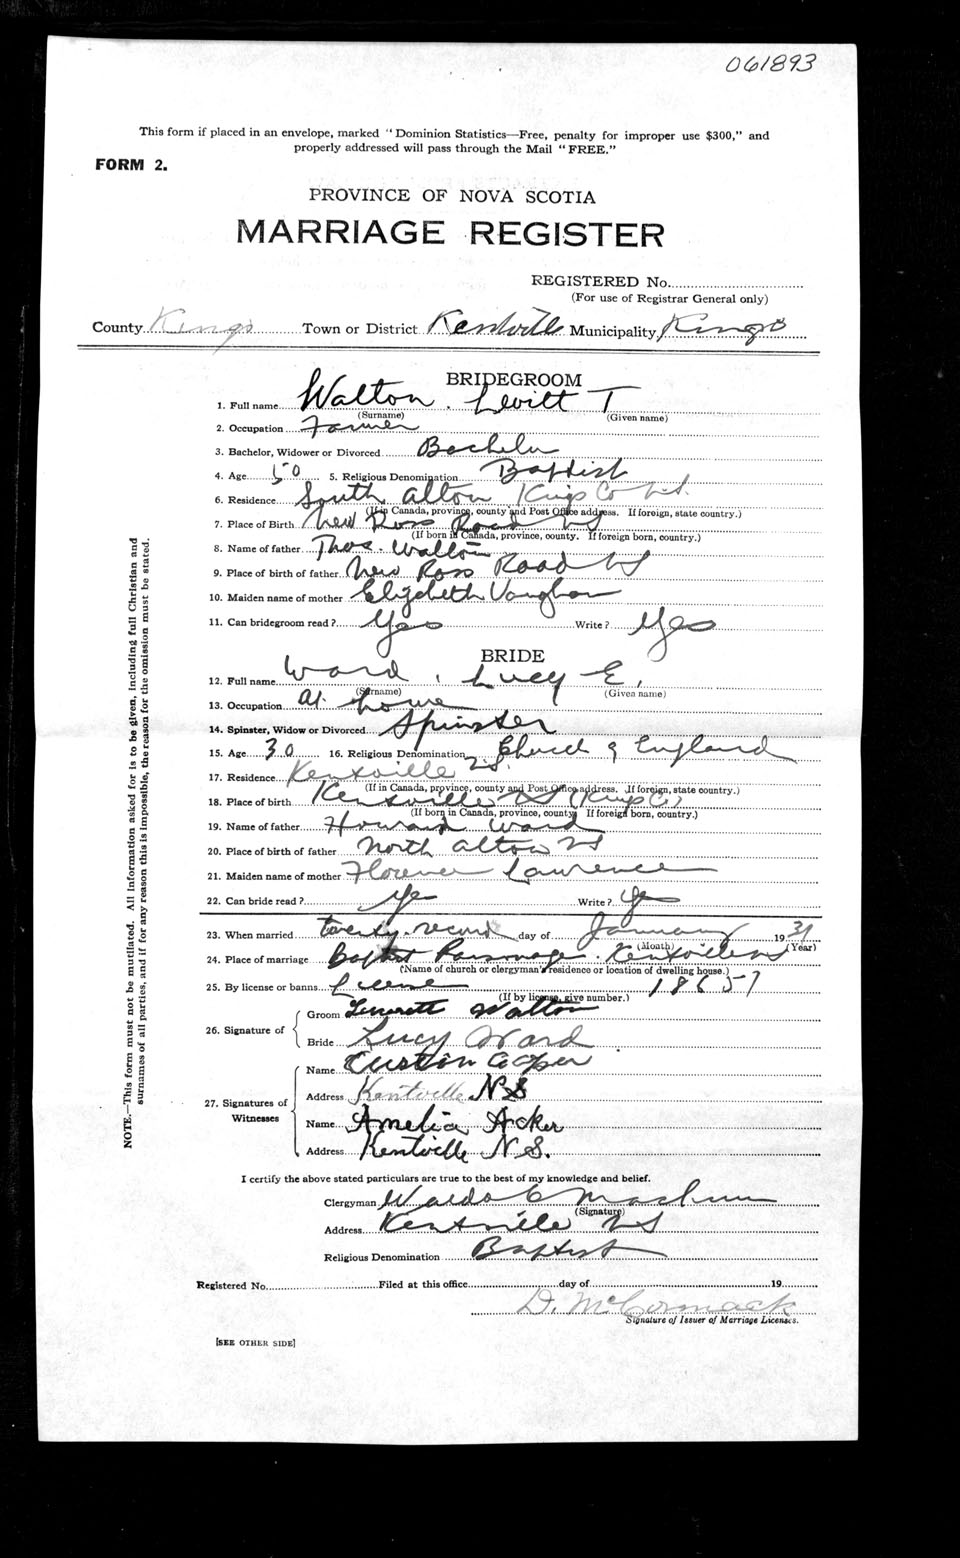 061893
This form if placed in an envelope, marked "Dominion Statistics—Free, penalty for improper use $300," and
properly addressed will pass through the Mail "FREE."
FORM 2.
PROVINCE OF NOVA SCOTIA
MARRIAGE REGISTER
REGISTERED No.
(For use of Registrar General only)
County Kings Town or District Kentville Municipality Kings
BRIDEGROOM
1. Full name Walton. Levitt T
(Surname) (Given name)
2. Occupation Farmer
3. Bachelor, Widower or Divorced Bachelor
4. Age 50 5. Religious Denomination Baptist
6. Residence South Alton Kings Co N.S.
(If in Canada, province, county and Post Office address. If foreign, state country.)
7. Place of Birth New Ross Road NS
(If born in Canada, province, county. If foreign born, country.)
8. Name of father Thos. Walton
9. Place of birth of father New Ross Road NS
10. Maiden name of mother Elizabeth Vaughan
11. Can bridegroom read? Yes Write? Yes
BRIDE
12. Full name Ward, Lucy E.
(Surname) (Given name)
13. Occupation At home
14. Spinster, Widow or Divorced Spinster
15. Age 30 16. Religious Denomination Church of England
17. Residence Kentville N.S.
(If in Canada, province, county and Post Office address. If foreign, state country.)
18. Place of birth Kentville NS (Kings Co)
(If born in Canada, province, county. If foreign born, country.)
19. Name of father Howard Ward
20. Place of birth of father North Alton NS
21. Maiden name of mother Florence Lawrence
22. Can bride read? Yes Write? Yes
23. When married twenty second day of January 1931
(Month) (Year)
24. Place of marriage Baptist Parsonage. Kentville NS
(Name of church or clergyman's residence or location of dwelling house.)
25. By license or banns License 18657
(If by license, give number.)
26. Signature of
Groom Leverett Walton
Bride Lucy Ward
27. Signatures of Witnesses
Name Custin Cooper
Address Kentville N.S
Name Amelia Acker
Address Kentville N.S.
I certify the above stated particulars are true to the best of my knowledge and belief.
Clergyman Waldo C
(Signature)
Address Kentville NS
Religious Denomination Baptist
Registered No. Filed at this office day of 19
D. McCormack
Signature of Issuer of Marriage Licenses.
[SEE OTHER SIDE]
NOTE.—This form must not be mutilated. All information asked for is to be given, including full Christian and
surnames of all parties, and if for any reason this is impossible, the reason for the omission must be stated.